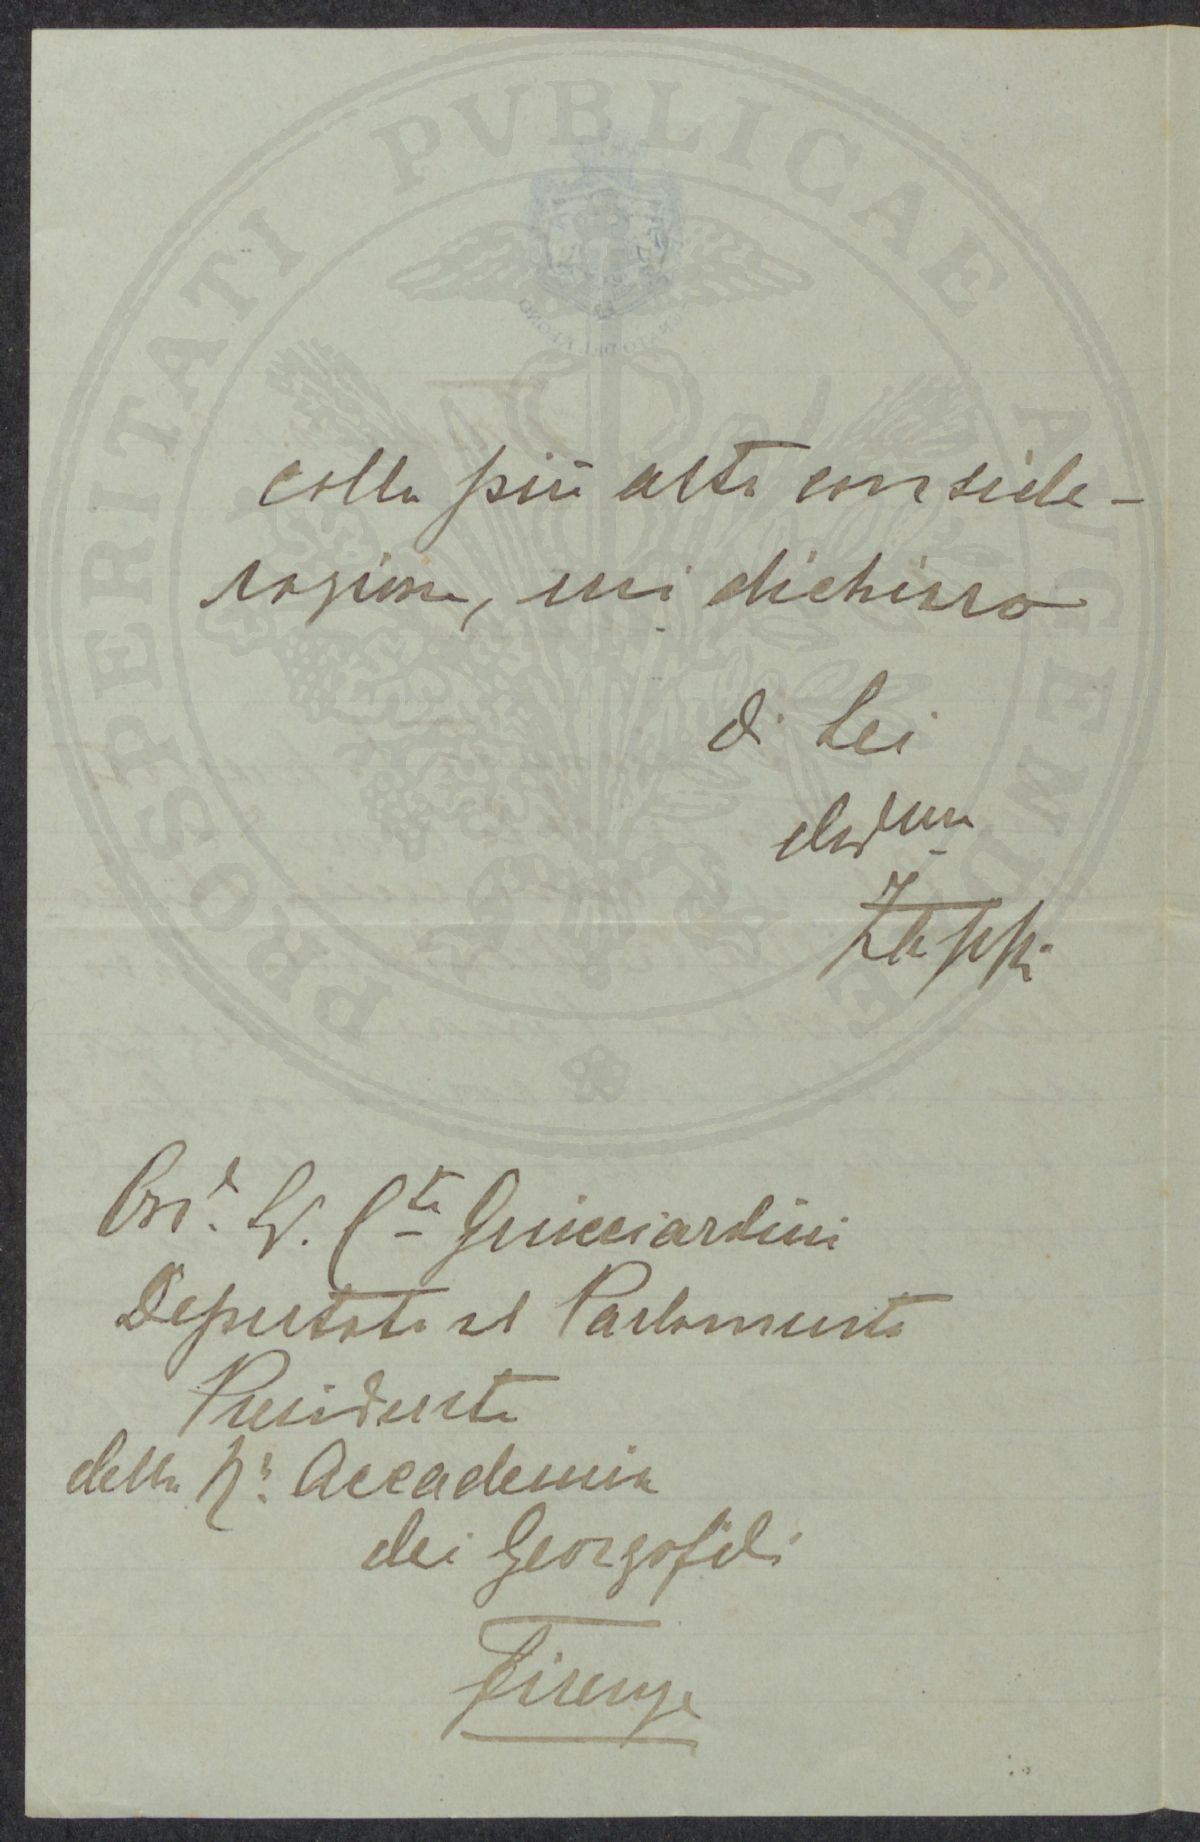 PROSPERITATI PVBLICAE AVGENDAE
colla più alta conside-
razione, mi dichiaro
di Lei
dev.mo
Zappi
G. Cte Guicciardini
Deputato al Parlamento
Presidente
della R. Accademia
dei Georgofili
Firenze